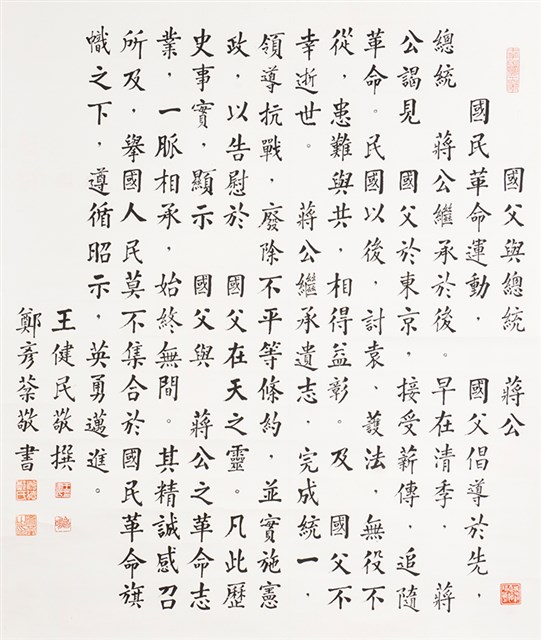 國父與總統　蔣公
國民革命運動，　國父倡導於先，
總統　蔣公繼承於後。早在清季，　蔣
公謁見　國父於東京，接受薪傳，追隨
革命。民國以後，討袁、護法，無役不
從，患難與共，相得益彰。及　國父不
幸逝世。　蔣公繼承遺志，完成統一，
領導抗戰，廢除不平等條約，並實施憲
政，以告慰於　國父在天之靈。凡此歷
史事實，顯示　國父與　蔣公之革命志
業，一脈相承，始終無間。其精誠感召
所及，舉國人民莫不集合於國民革命旗
幟之下，遵循昭示，英勇邁進。
王健民敬撰
鄭彥棻敬書